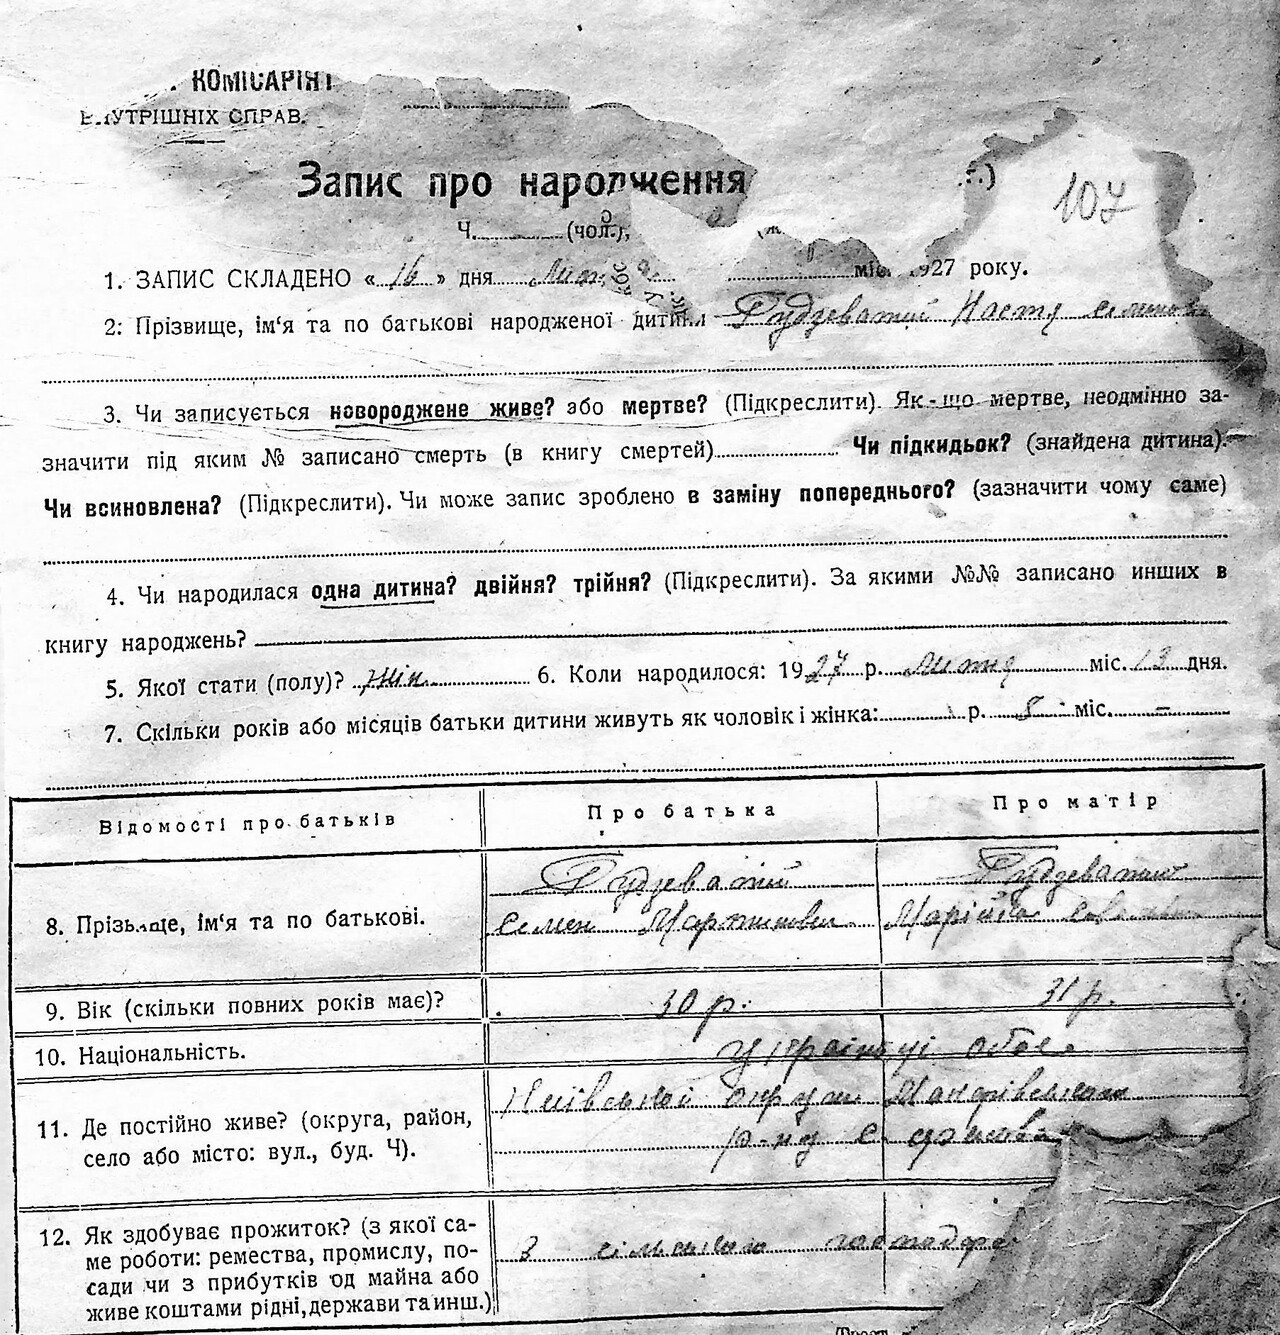 КОМІСАРІЯТ
ВНУТРІШНІХ СПРАВ.
107
Запис про народження
Ч. (чол.),
1. ЗАПИС СКЛАДЕНО « 16 » дня міс. 1927 року.
2. Прізвище, ім'я та по батькові народженої дитини Гудзеватий Настя
3. Чи записується новороджене живе? або мертве? (Підкреслити). Як-що мертве, неодмінно за-
значити під яким № записано смерть (в книгу смертей) Чи підкидьок? (знайдена дитина).
Чи всиновлена? (Підкреслити). Чи може запис зроблено в заміну попереднього? (зазначити чому саме)
4. Чи народилася одна дитина? двійня? трійня? (Підкреслити). За якими №№ записано инших в
книгу народжень?
5. Якої стати (полу)? жін. 6. Коли народилося: 1927 р. лютня міс. 13 дня.
7. Скільки років або місяців батьки дитини живуть як чоловік і жінка: р. 5 міс. –
Відомості про батьків Про батька Про матір
Гудзеватий Гудзеватий
8. Прізвище, ім'я та по батькові. Семен Мартинович Марійка
9. Вік (скільки повних років має)? 30 р. 31 р.
10. Національність. Українці обоє
11. Де постійно живе? (округа, район, Київської округи
село або місто: вул., буд. Ч). р-ну с.
12. Як здобуває прожиток? (з якої са-
ме роботи: ремества, промислу, по- З сільського господар
сади чи з прибутків од майна або
живе коштами рідні, держави та инш.)